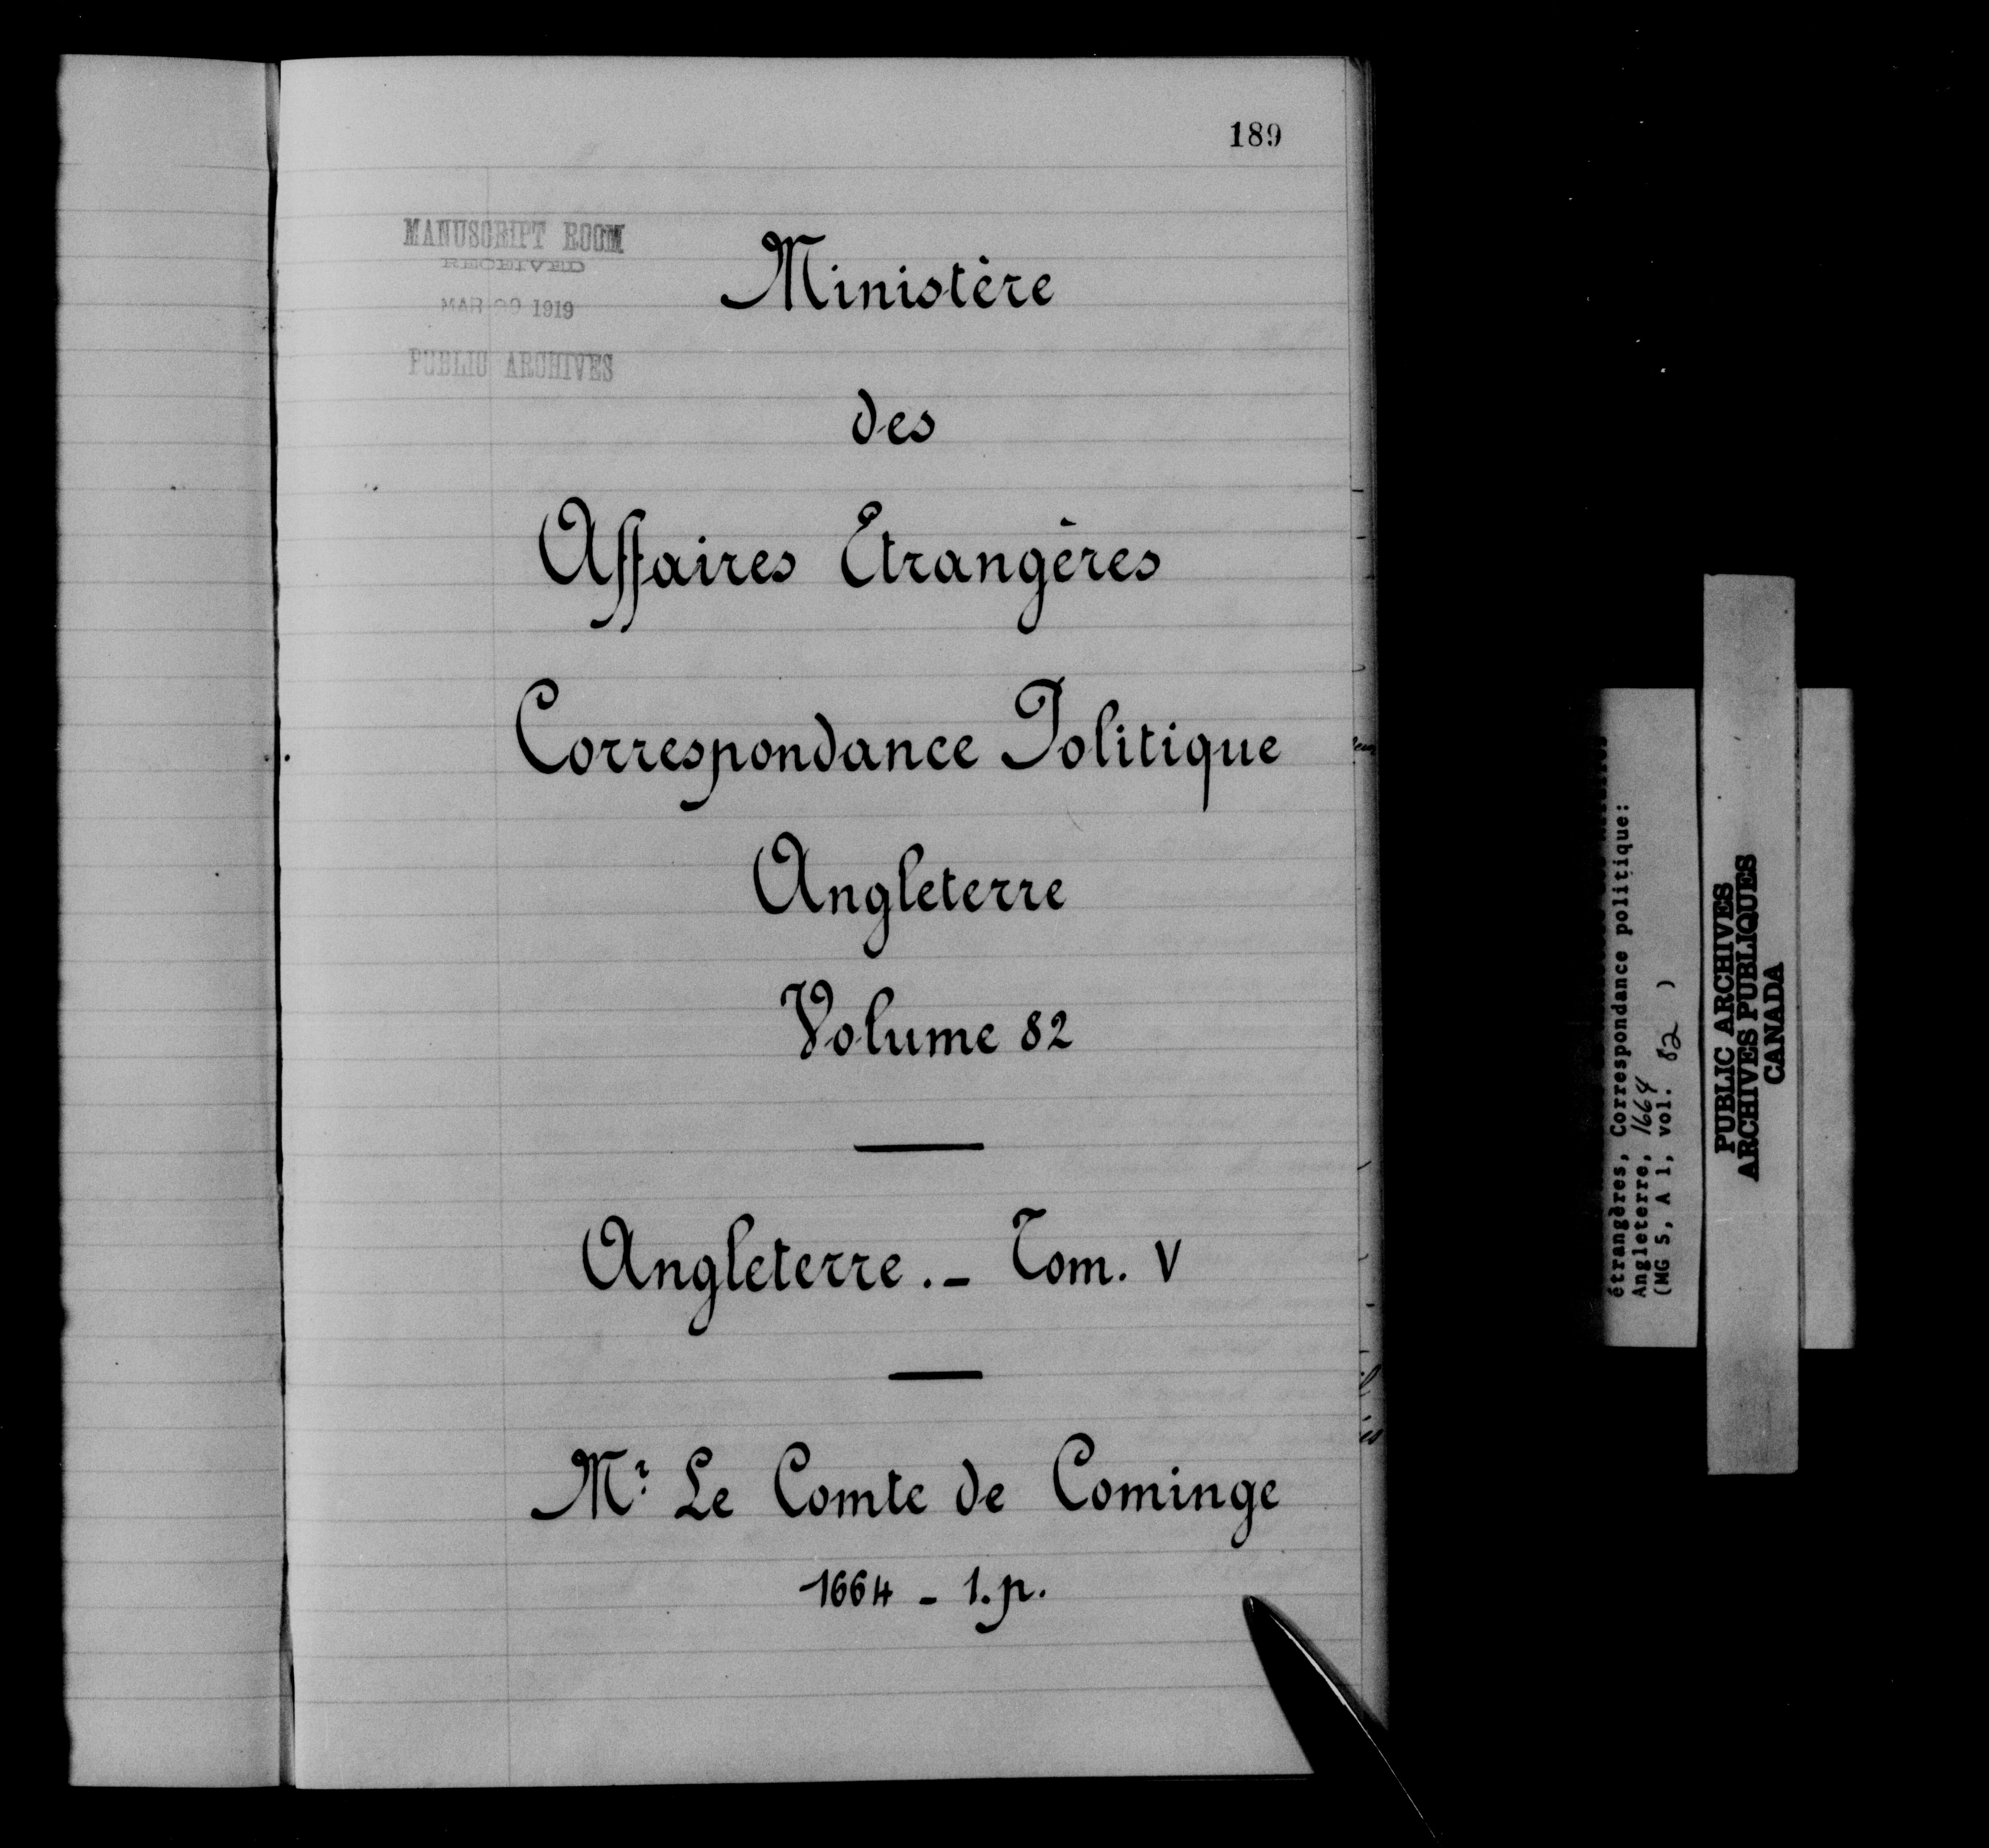 189
MANUSCRIPT ROOM
RECEIVED
MAR 1919
PUBLIC ARCHIVES
Ministère
des
Affaires Étrangères
Correspondance Politique
Angleterre
Volume 82
Angleterre. _ Tom. V
Mr. Le Comte de Cominge
1664 - 1. p.
étrangères, Correspondance politique:
Angleterre, 1664
(MG 5, A 1, vol. 82 )
PUBLIC ARCHIVES
ARCHIVES PUBLIQUES
CANADA